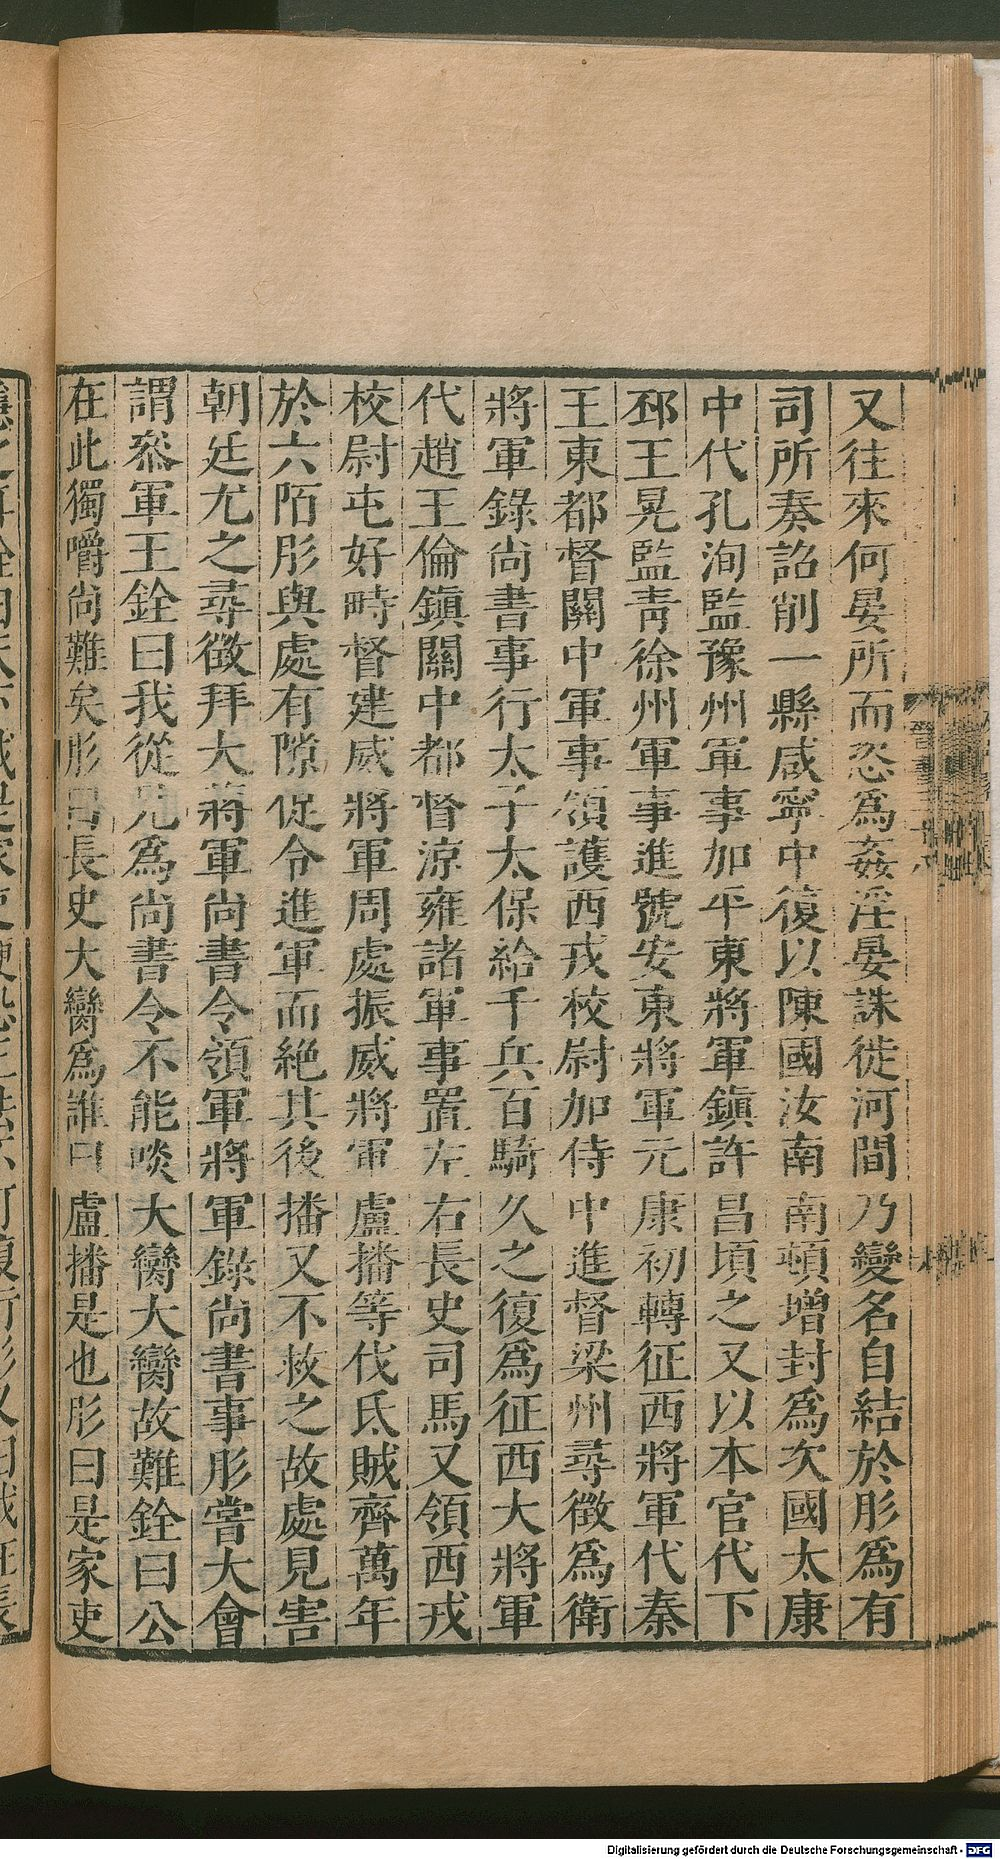 又往來何晏所而恣爲姦淫晏誅徙河間乃變名自結於肜爲有
司所奏詔削一縣咸寧中復以陳國汝南南頓增封爲次國太康
中代孔洵監豫州軍事加平東將軍鎮許昌頃之又以本官代下
邳王晃監青徐州軍事進號安東將軍元康初轉征西將軍代秦
王東都督關中軍事領護西戎校尉加侍中進督梁州尋徵爲衛
將軍錄尚書事行太子太保給千兵百騎久之復爲征西大將軍
代趙王倫鎮關中都督涼雍諸軍事置左右長史司馬又領西戎
校尉屯好畤督建威將軍周處振威將軍盧播等伐氐賊齊萬年
於六陌肜與處有隙促令進軍而絕其後播又不救之故處見害
朝廷尤之尋徵拜大將軍尚書令領軍將軍錄尚書事肜嘗大會
謂叅軍王銓曰我從兄爲尚書令不能啖大臠大臠故難銓曰公
在此獨嚼尚難矣肜曰長史大臠爲誰曰盧播是也肜曰是家吏
Digitalisierung gefördert durch die Deutsche Forschungsgemeinschaft - DFG